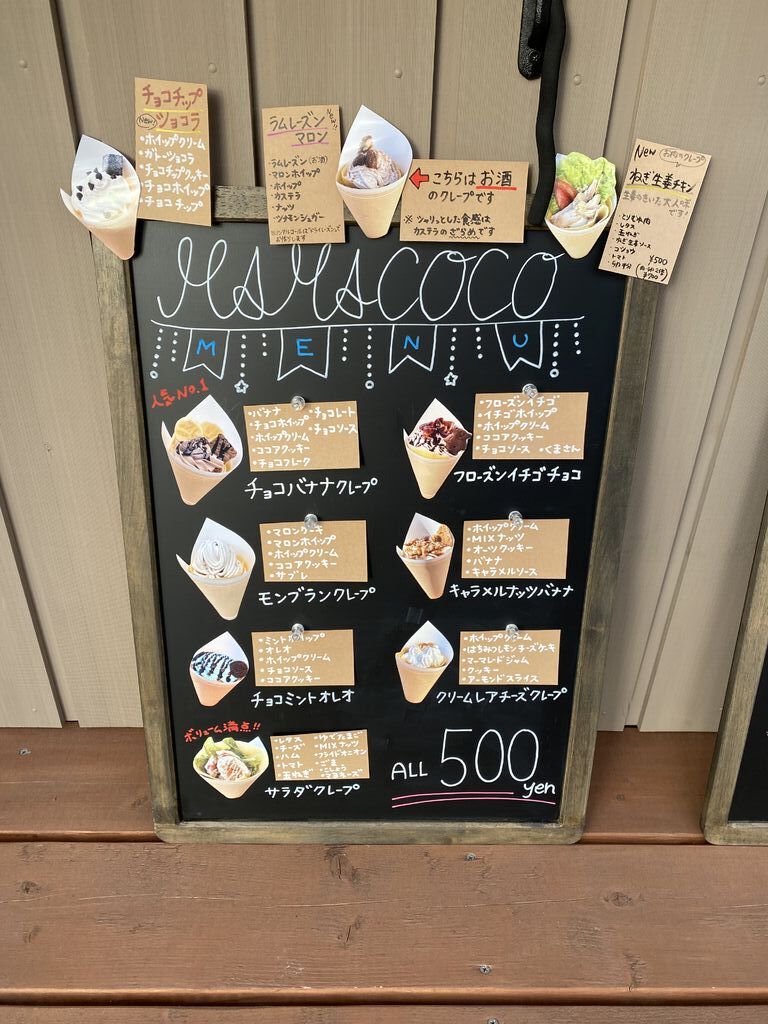 チョコチップ
New! ショコラ
・ホイップクリーム
・ガトーショコラ
・チョコチップクッキー
・チョコホイップ
・チョコチップ
New!!
ラムレーズン
マロン
・ラムレーズン(お酒)
・マロンホイップ
・ホイップ
・カステラ
・ナッツ
・シナモンシュガー
こちらはお酒
のクレープです
※ シャリっとした食感は
カステラのざらめです
New お肉のクレープ
ねぎ生姜チキン
生姜のきいた大人味
です♪
・とりむね肉
・レタス
・玉ねぎ
・ねぎ生姜ソース
・コショウ
・トマト
¥500
MAMACOCO
MENU
人気No.1
・バナナ ・チョコレート
・チョコホイップ ・チョコソース
・ホイップクリーム
・ココアクッキー
・チョコフレーク
チョコバナナクレープ
・フローズンイチゴ
・イチゴホイップ
・ホイップクリーム
・ココアクッキー
・チョコソース ・くまさん
フローズンイチゴチョコ
・マロンケーキ
・マロンホイップ
・ホイップクリーム
・ココアクッキー
・サブレ
モンブランクレープ
・ホイップクリーム
・MIXナッツ
・オーツクッキー
・バナナ
・キャラメルソース
キャラメルナッツバナナ
・ミントホイップ
・オレオ
・ホイップクリーム
・チョコソース
・ココアクッキー
チョコミントオレオ
・ホイップクリーム
・はちみつレモンチーズケーキ
・マーマレードジャム
・クッキー
・アーモンドスライス
クリームレアチーズクレープ
ボリューム満点!!
・レタス ・ゆでたまご
・チーズ ・MIXナッツ
・ハム ・フライドオニオン
・トマト ・ごま
・玉ねぎ ・こしょう
・マヨネーズ
サラダクレープ
ALL 500 yen